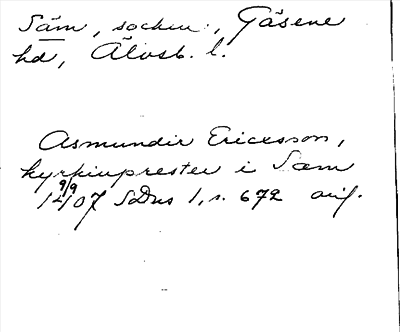 Säm, socken, Gäsene
hd, Älvsb. l.
Asmundir Ericsson,
kyrkiuprester i Sæm
9/9 1407 SDns 1, s. 672 orig.